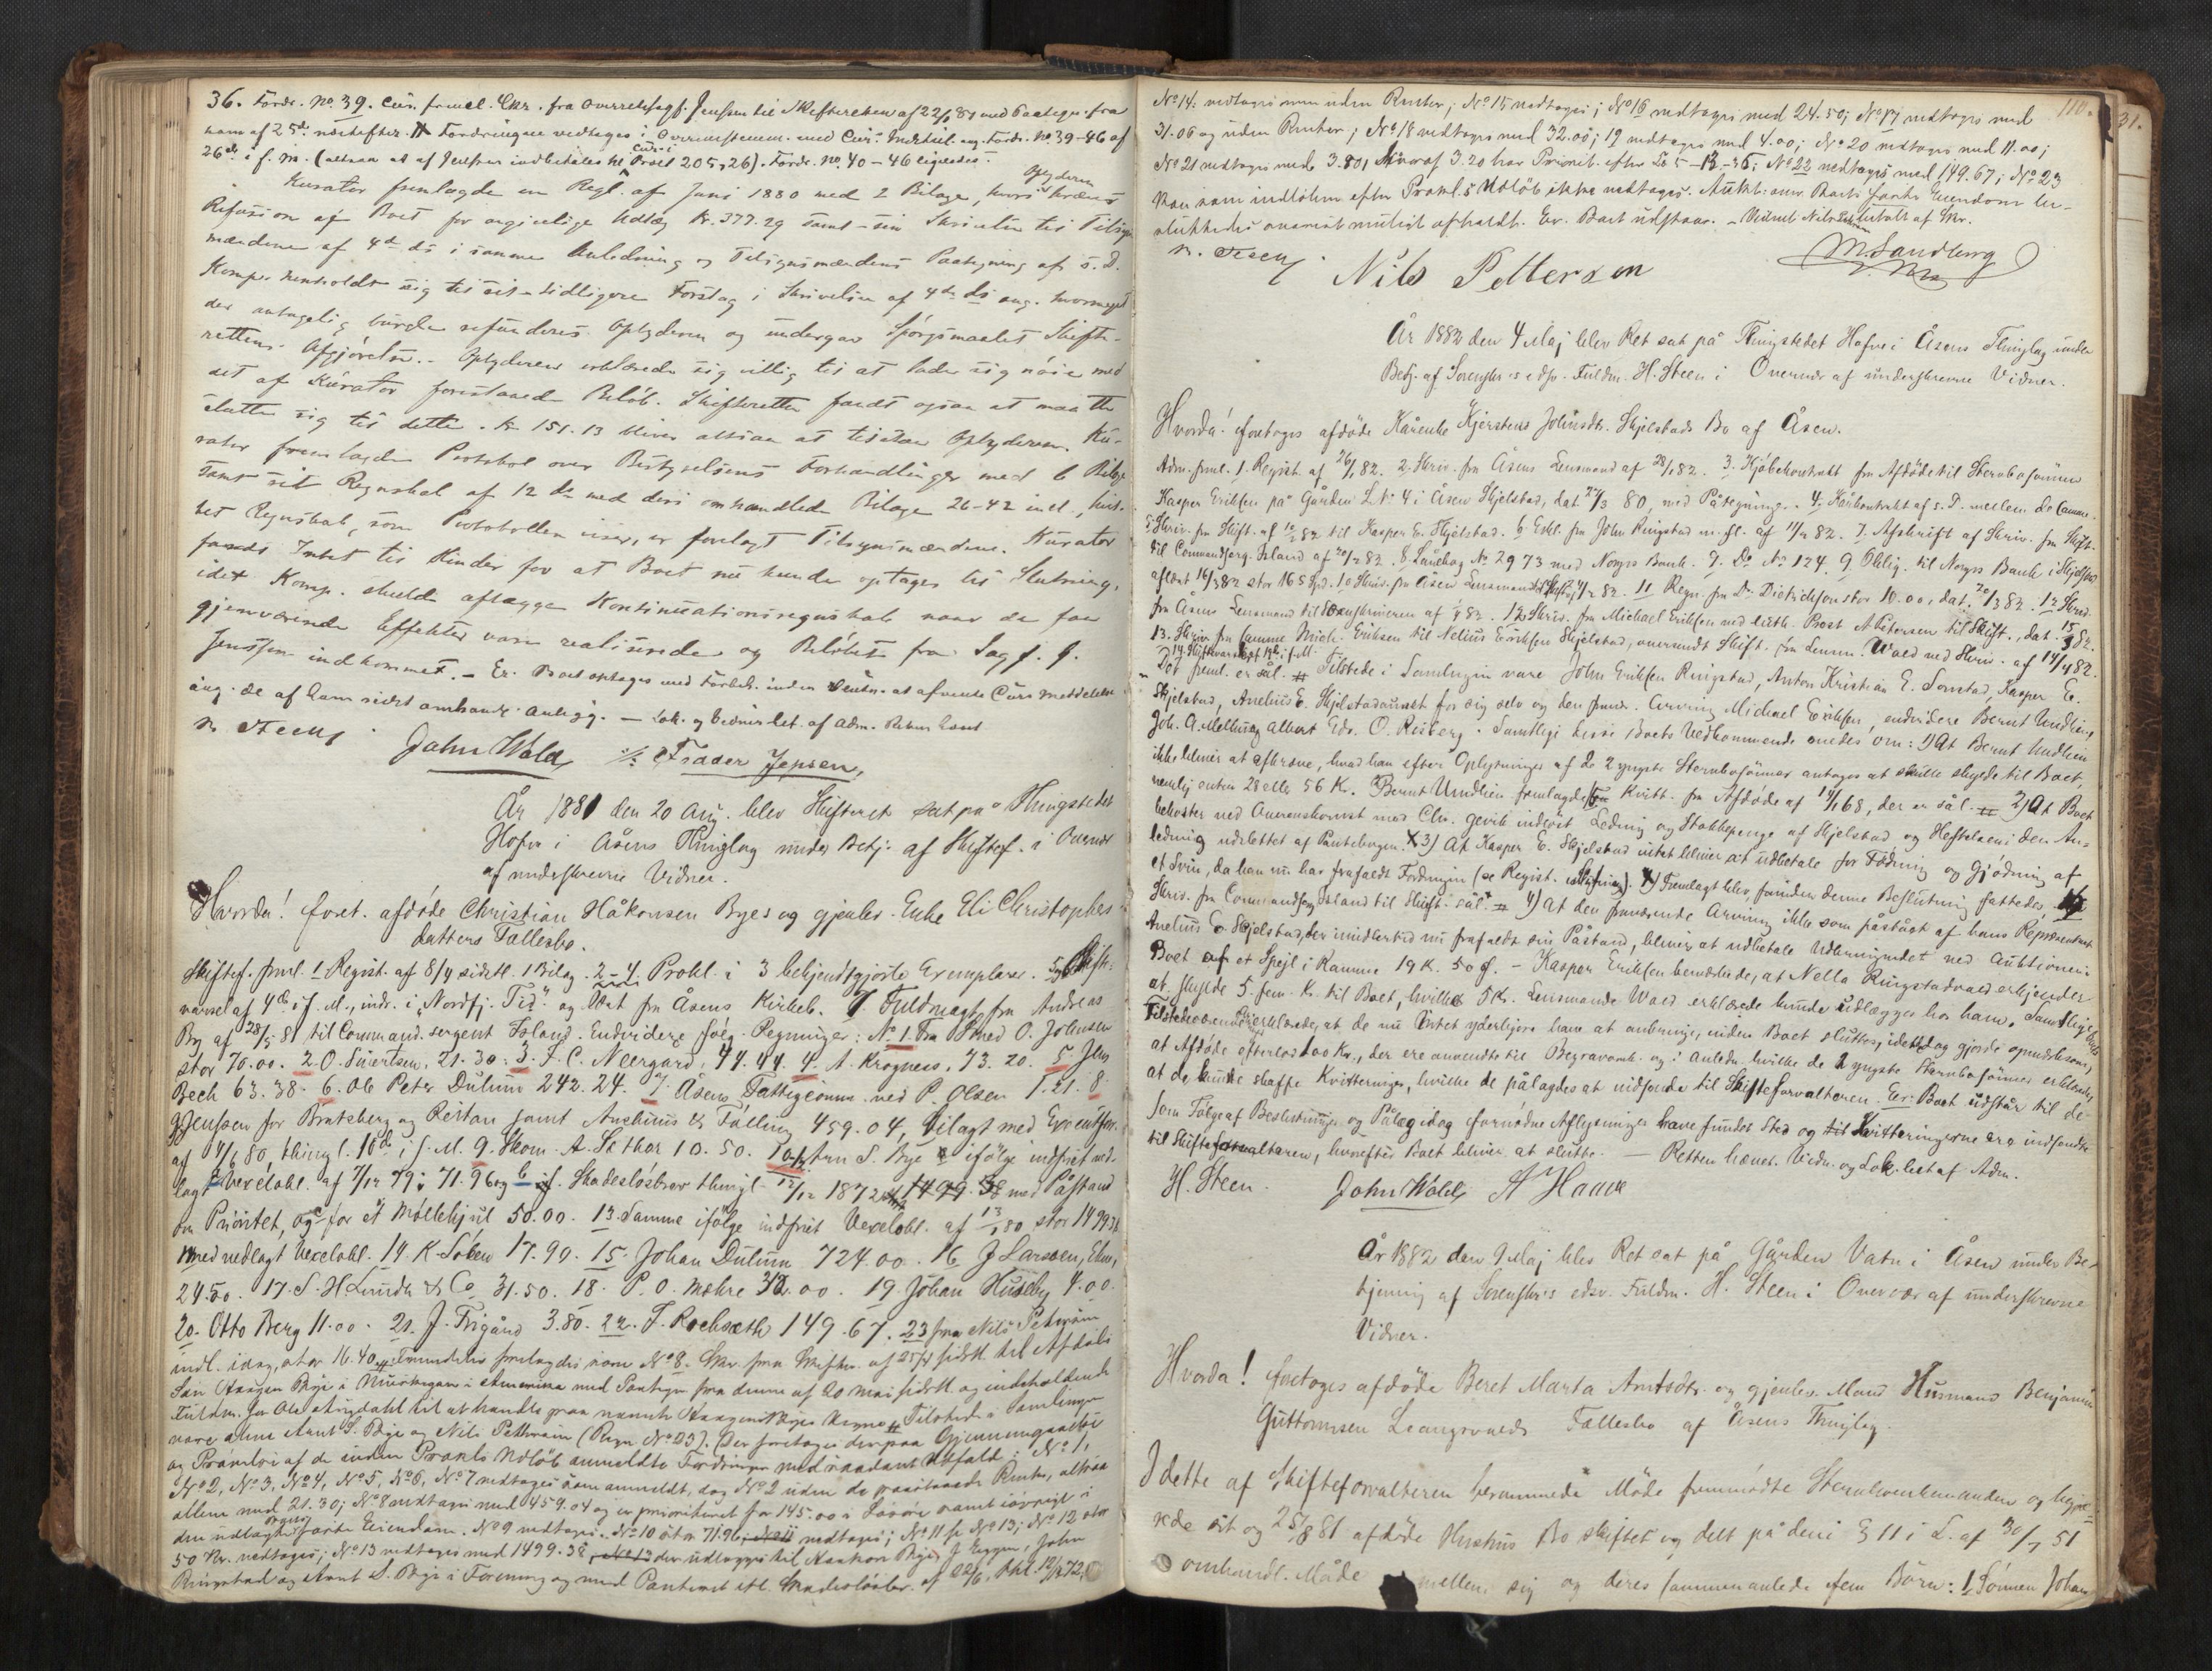 36. Fordr. No. 39. Cur. freml. Skr. fra Overretssagf. Jenssen til Skifteretten af 22/7 81 med Paategn. fra
ham af 25de næstefter. # Fordringen vedtoges i Overensstemm. med Cur. Indstil. ang. Fordr. No 39-46 af
26de i f. M. (altsaa at af Jenssen indbetales til Cur. i 205,26). Fordr. No. 40-46 ligesedes.
Kurator fremlagde en Regl. af Juni 1880 med 2 Bilage, hvori Opbyderen kræves
Refusion af Boet for angivelige Udlæg Kr. 377.29 samt sin Skrivelse til Tilsyns
mændene af 4de ds i samme Anledning og Tilsynsmændens Paategning af s. D.
Komp. henholdt sig til sit tidligere Forslag i Skrivelse af 4de ds ang. hvormeget
der antagelig burde refunderes Opbyderen og undergav Spørgsmaalet Skifte-
rettens Afgjørelse. - Opbyderen erklærede sig villig til at lade sig nøie med
det af Kurator foreslaaede Beløb. Skifteretten fandt ogsaa at maatte
slutte sig til dette. Kr 151.13 bliver altsaa at tilstaa Opbyderen. Ku-
rator fremlagde Protokol over Bestyrelsens Forhandlinger med 6 Bilage
samt sit Regnskab af 12 ds med deri omhandlede Bilage 26-42 incl., hvil-
ket Regnskab, som Protokollen viser, er forelagt Tilsynsmændene. Kurator
fandt Intet til Hinder for at Boet nu kunde optages til Slutning,
idet Komp. skulde aflægge Kontinuationsregnskab naar de faa
gjenværende Effekter vare realiserede og Beløbet fra Sagf. G.
Jenssen indkommet. - Er. Boet optages med Forbeh. inden Slutn. at afvente Curs Meddelelse
ang. de af ham sidst omhandl. Anligg. - Lok. og Vidner bet. af Adm. Retten hævet
N. Steen
John Wold, Fradser Jepsen,
År 1881 den 20 Aug. blev Skifteret sat på Thingstedet
Hofve i Åsens Thinglag under Betj. af Skiftef. i Overvær
af underskrevne Vidner.
Hvorda! foret. afdøde Christian Håkonsen Byes og gjenlev. Enke Eli Christophers-
datters Fællesbo.
Skiftef. freml. 1 Regist. af 8/4 sidstl. 1 Bilag. 2-4 Prokl. i 3 bekjendtgjorte Exemplarer. 5 Skifte-
varsel af 4de i f. M., indr. i "Nordfj. Tid." og læst fra Åsens Kirkeb. 7 Fuldmagt fra Andreas
By af 28/5 81 til Command.sergent Island. Endvidere følg. Regninger: No 1 fra Smed O. Johnsen
stor 70.00. 2. O. Sivertsen, 21.30. 3. F. C. Neergard, 44.44. 4. A. Krognæss, 73.20. 5. Jens
Bech 63.38. 6. Ole Peter Dulum 242.24. 7. Åsens Fattigcomm. ved P. Olsen 1.21. 8
G. Jenssen for Brateberg og Reitan samt Anchinus & Falling 459.04, bilagt med Execution
af 9/6 80, thingl. 10de i f. M. 9. Skom. A. St thor 10.50. 10. Arn S. Bye ifølge indfriet ved-
lagt Vexelobl. af 7/12 79: 71.96 og if. Skadesløsbrev thingl. 12/12 1872 1499.38 med Påstand
om Prioritet, og for et Møllehjul 50.00. 13. Samme ifølge indfriet Vexelobl. af 13/1 80 stor 1499.38
med vedlagt Vexelobl. 14. K. Søbew 17.90. 15. Johan Dulum 724.00. 16. J. Larssen, Ekne,
24.50. 17. S. H. Lundh & Co 31.50. 18. P. O. Mæhre 32.00. 19. Johan Huseby 4.00.
20. Otto Berg 11.00. 21. J. Frigård 3.80. 22. F. Rochsæth 149.67. 23 fra Nils Petterson
indl. idag, stor 16.40. Fremdeles fremlagdes som No 8. Skr. fra Skiftev. af 25/4 sidstl. til Afdødes
Søn Haagen Bye i Muskegan i Amerika med Paategn. fra denne af 20 Mai sidstl. og indeholdende
Fuldm. for Ole Amdahl til at handle paa nævnte Haagens Byes Vegne. Tilstede i Samlingen
vare alene Arnt S. Bye og Nils Petterson (Regn. No 23). Der foretoges derpaa Gjennemgaaelse
og Prøvelse af de inden Prokls Udløb anmeldte Fordringer med saadant Udfald: No 1,
No 2, No 3, No 4, No 5, No 6, No 7 vedtoges som anmeldt, dog No 2 uden de paastaaede Renter, altsaa
allene med 21.30; No 8 vedtoges med 459.04 og er prioriteret for 145.00 i Løsøre samt iøvrigt i
den udlagte faste Eiendom. No 9 vedtoges. No 10 stor 71.96, vedtoges; No 11 se No 13; No 12 stor
50 Kr. vedtoges; No 13 vedtoges med 1499.38, der udlægges til Haakon Bye, J. Eggen, John
Ringstad og Arnt S. Bye i Forening og med Panteret iflg. Skadesløsbr. af 22/6, thl. 12/12 72,
110.
31.
No 14: vedtoges men uden Renter; No 15 vedtoges; No 16 vedtoges med 24.50; No 17 vedtoges med
31.06 og uden Renter; No 18 vedtoges med 32.00; 19 vedtoges med 4.00; No 20 vedtoges med 11.00;
No 21 vedtoges med 3.80, hvoraf 3.20 har Priorit. efter Lov 5-12-36; No 22 vedtoges med 149.67; No 23
kan som indkommen efter Prokl.s Udløb ikke vedtages. Auktion over Boets faste Eiendom be-
sluttedes snarest muligt afholdt. Er. Boet udstaar. - Vidnet Nils betalt af Skr.
N. Steen
Nils Petterson
M. Sandberg
År 1882 den 4 Maj blev Ret sat på Thingstedet Hofve i Åsens Thinglag under
Betj. af Sorenskr.s edsv. Fuldm. H. Steen i Overvær af underskrevne Vidner.
Hvorda! foretoges afdøde Kårenhe Kjerstene Johnsdtr. Skjelstads Bo af Åsen.
Adm. freml. 1. Regist. af 26/1 82. 2. Skriv. fra Åsens Lensmand af 28/1 82. 3. Kjøbekontrakt fra Afdøde til Stervbosønnen
Kasper Eriksen på Gården L. No 4 i Åsen Skjelstad, dat. 27/3 80, med Påtegning. 4. Kårkontrakt af s. D. mellem de samme.
5. Skriv. fra Skift. af 10/2 82 til Kasper E. Skjelstad. 6 Erkl. fra John Ringstad m. fl. af 11/2 82. 7. Afskrift af Skriv. fra Skift.
til Commandserg. Island af 20/2 82. 8. Lånebog No 2973 med Norges Bank. 9. Do No 124. 9 Oblig. til Norges Bank i Skjelstad
aflæst 16/3 82 stor 165 Spd. 10 Skriv. fra Åsens Lensmand til Skift. 4/2 82. 11 Regn. fra Dr. Dietrichson stor 10.00, dat. 20/3 82. 12 Skriv.
fra Åsens Lensmand til Sorenskriveren af 1/4 82. 12 Skriv. fra Michael Eriksen ved luth. Prest A. Petersen til Skift., dat. 15/3 82.
13. Skriv. fra samme Mich. Eriksen til Nelius Eriksen Skjelstad, oversendt Skift. fra Lensm. Wald ved Skriv. af 14/4 82.
Dof freml. er sål. # Tilstede i Samlingen vare John Eriksen Ringstad, Anton Kristian E. Sonstad, Kasper E.
Skjelstad, Anelius E. Skjelstad for sig selv og den fravær. Arving Michael Eriksen, endvidere Bernt Undlien,
Joh. A. Melhus og Albert Eds. O. Risberg. Samtlige disse Boets Vedkommende enedes om: 1) At Bernt Undlien
ikke bliver at afkræve, hvad han efter Oplysninger af de 2 yngste Stervbosønner antages at skulle skylde til Boet,
nemlig enten 28 elle 56 Kr. Bernt Undlien fremlagde Kvitt. fra Afdøde af 14/1 68, der er sål. # 2) At Boet
bekoster ved Overenskomst med Clv. Gevik indløst Ledning og Stokkepenge af Skjelstad og Heftelsen i den An-
ledning udslettet af Pantebogen. X 3) At Kasper E. Skjelstad intet bliver at udbetale for Fødning og Gjødning af
et Svin, da han nu har frafaldt Fordringen (se Regist.). X) Fremlagt blev, forinden denne Beslutning fattedes,
Skriv. fra Commandserg. Island til Skift. sål. # 4) At den fraværende Arving ikke som påstået af hans Repræsentant
Anelius E. Skjelstad, der imidlertid nu frafaldt sin Påstand, bliver at udbetale Udbringendet ved Auktionen i
Boet af et Spejl i Ramme 19 K. 50 Ø. - Kasper Eriksen bemærkede, at Nella Ringstadvald erkjender
at skylde 5 fem K. til Boet, hvilke 5 Kr. Lensmand Wald erklærede kunde udlægges hos ham. Samtlige
Tilstedeværende erklærede, at de nu Intet yderligere have at anbringe, inden Boet sluttes, idet idag gjorde opmærksom,
at Afdøde efterlod 100 Kr., der ere anvendte til Begravomk. og i Anledn. hvilke de 2 yngste Stervbosønner erklærede,
at de kunde skaffe Kvitteringer, hvilke de pålagdes at indsende til Skifteforvalteren. Er: Boet udstår til de
som Følge af Beslutninger og Pålæg idag fornødne Afgjørelser have fundet Sted og Kvitteringerne ere indsendte
til Skifteforvalteren, hvorefter Boet bliver at slutte. - Retten hævet. Vidn. og Lok. bet af Adm.
H. Steen. John Wold, A Haave
År 1882 den 9 Maj blev Ret sat på Gården Vatn i Åsen under Be-
tjening af Sorenskr.s edsv. Fuldm. H. Steen i Overvær af underskrevne
Vidner.
Hvorda! foretoges afdøde Beret Marta Arntsdtr. og gjenlev. Mand Husmand Benjamin
Guttormsen Leangsvalds Fællesbo af Åsens Thinglag.
I dette af Skifteforvalteren berammede Møde fremmødte Stervboenkemanden og begjæ-
rede sit og 25/8 81 afdøde Hustrus Bo skiftet og delt på den i § 11 i L. af 30/7 51
omhandl. Måde mellem sig og deres sammenavlede fem Børn: 1, Sønnen Johan